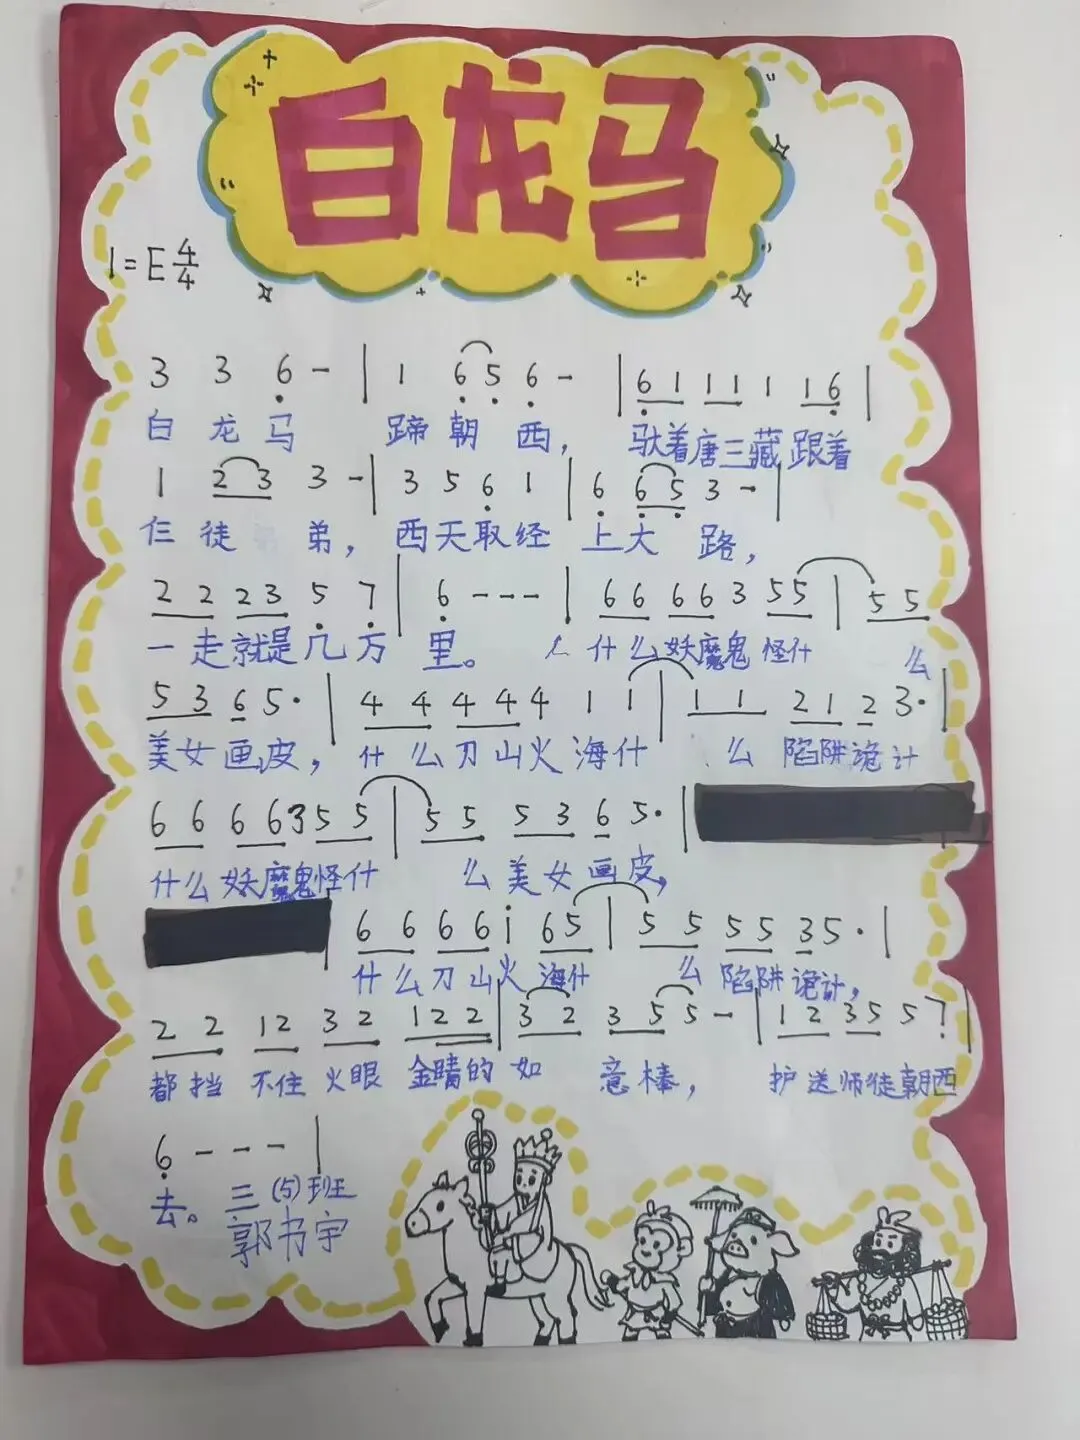 白龙马
1=E 4/4
3 3 6 - | 1 6 5 6 - | 6 1 1 1 1 1 6 |
白 龙 马 蹄 朝 西， 驮着唐三藏跟着
1 2 3 3 - | 3 5 6 1 | 6 6 5 3 - |
仨 徒 弟， 西天取经 上大 路，
2 2 2 3 5 7 | 6 - - - | 6 6 6 6 3 5 5 | 5 5
一走就是几万 里。 什么妖魔鬼怪什 么
5 3 6 5· | 4 4 4 4 4 1 1 | 1 1 2 1 2 3· |
美女画皮， 什么刀山火海什 么 陷阱诡计
6 6 6 6 3 5 5 | 5 5 5 3 6 5· |
什么妖魔鬼怪什 么美女画皮，
6 6 6 6 i 6 5 | 5 5 5 5 3 5· |
什么刀山火海什 么陷阱诡计，
2 2 1 2 3 2 1 2 2 | 3 2 3 5 5 - | 1 2 3 5 5 7 |
都挡不住火眼金睛的如 意棒， 护送师徒朝西
6 - - - |
去。 三(5)班
郭书宇